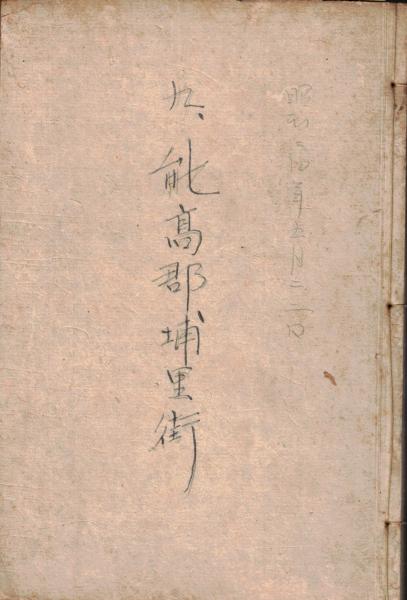 昭和 年五月二二日
九、能高郡埔里街